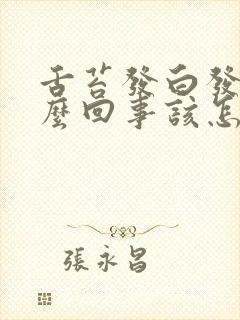 舌苔發白發
麼回事該怎
張永昌